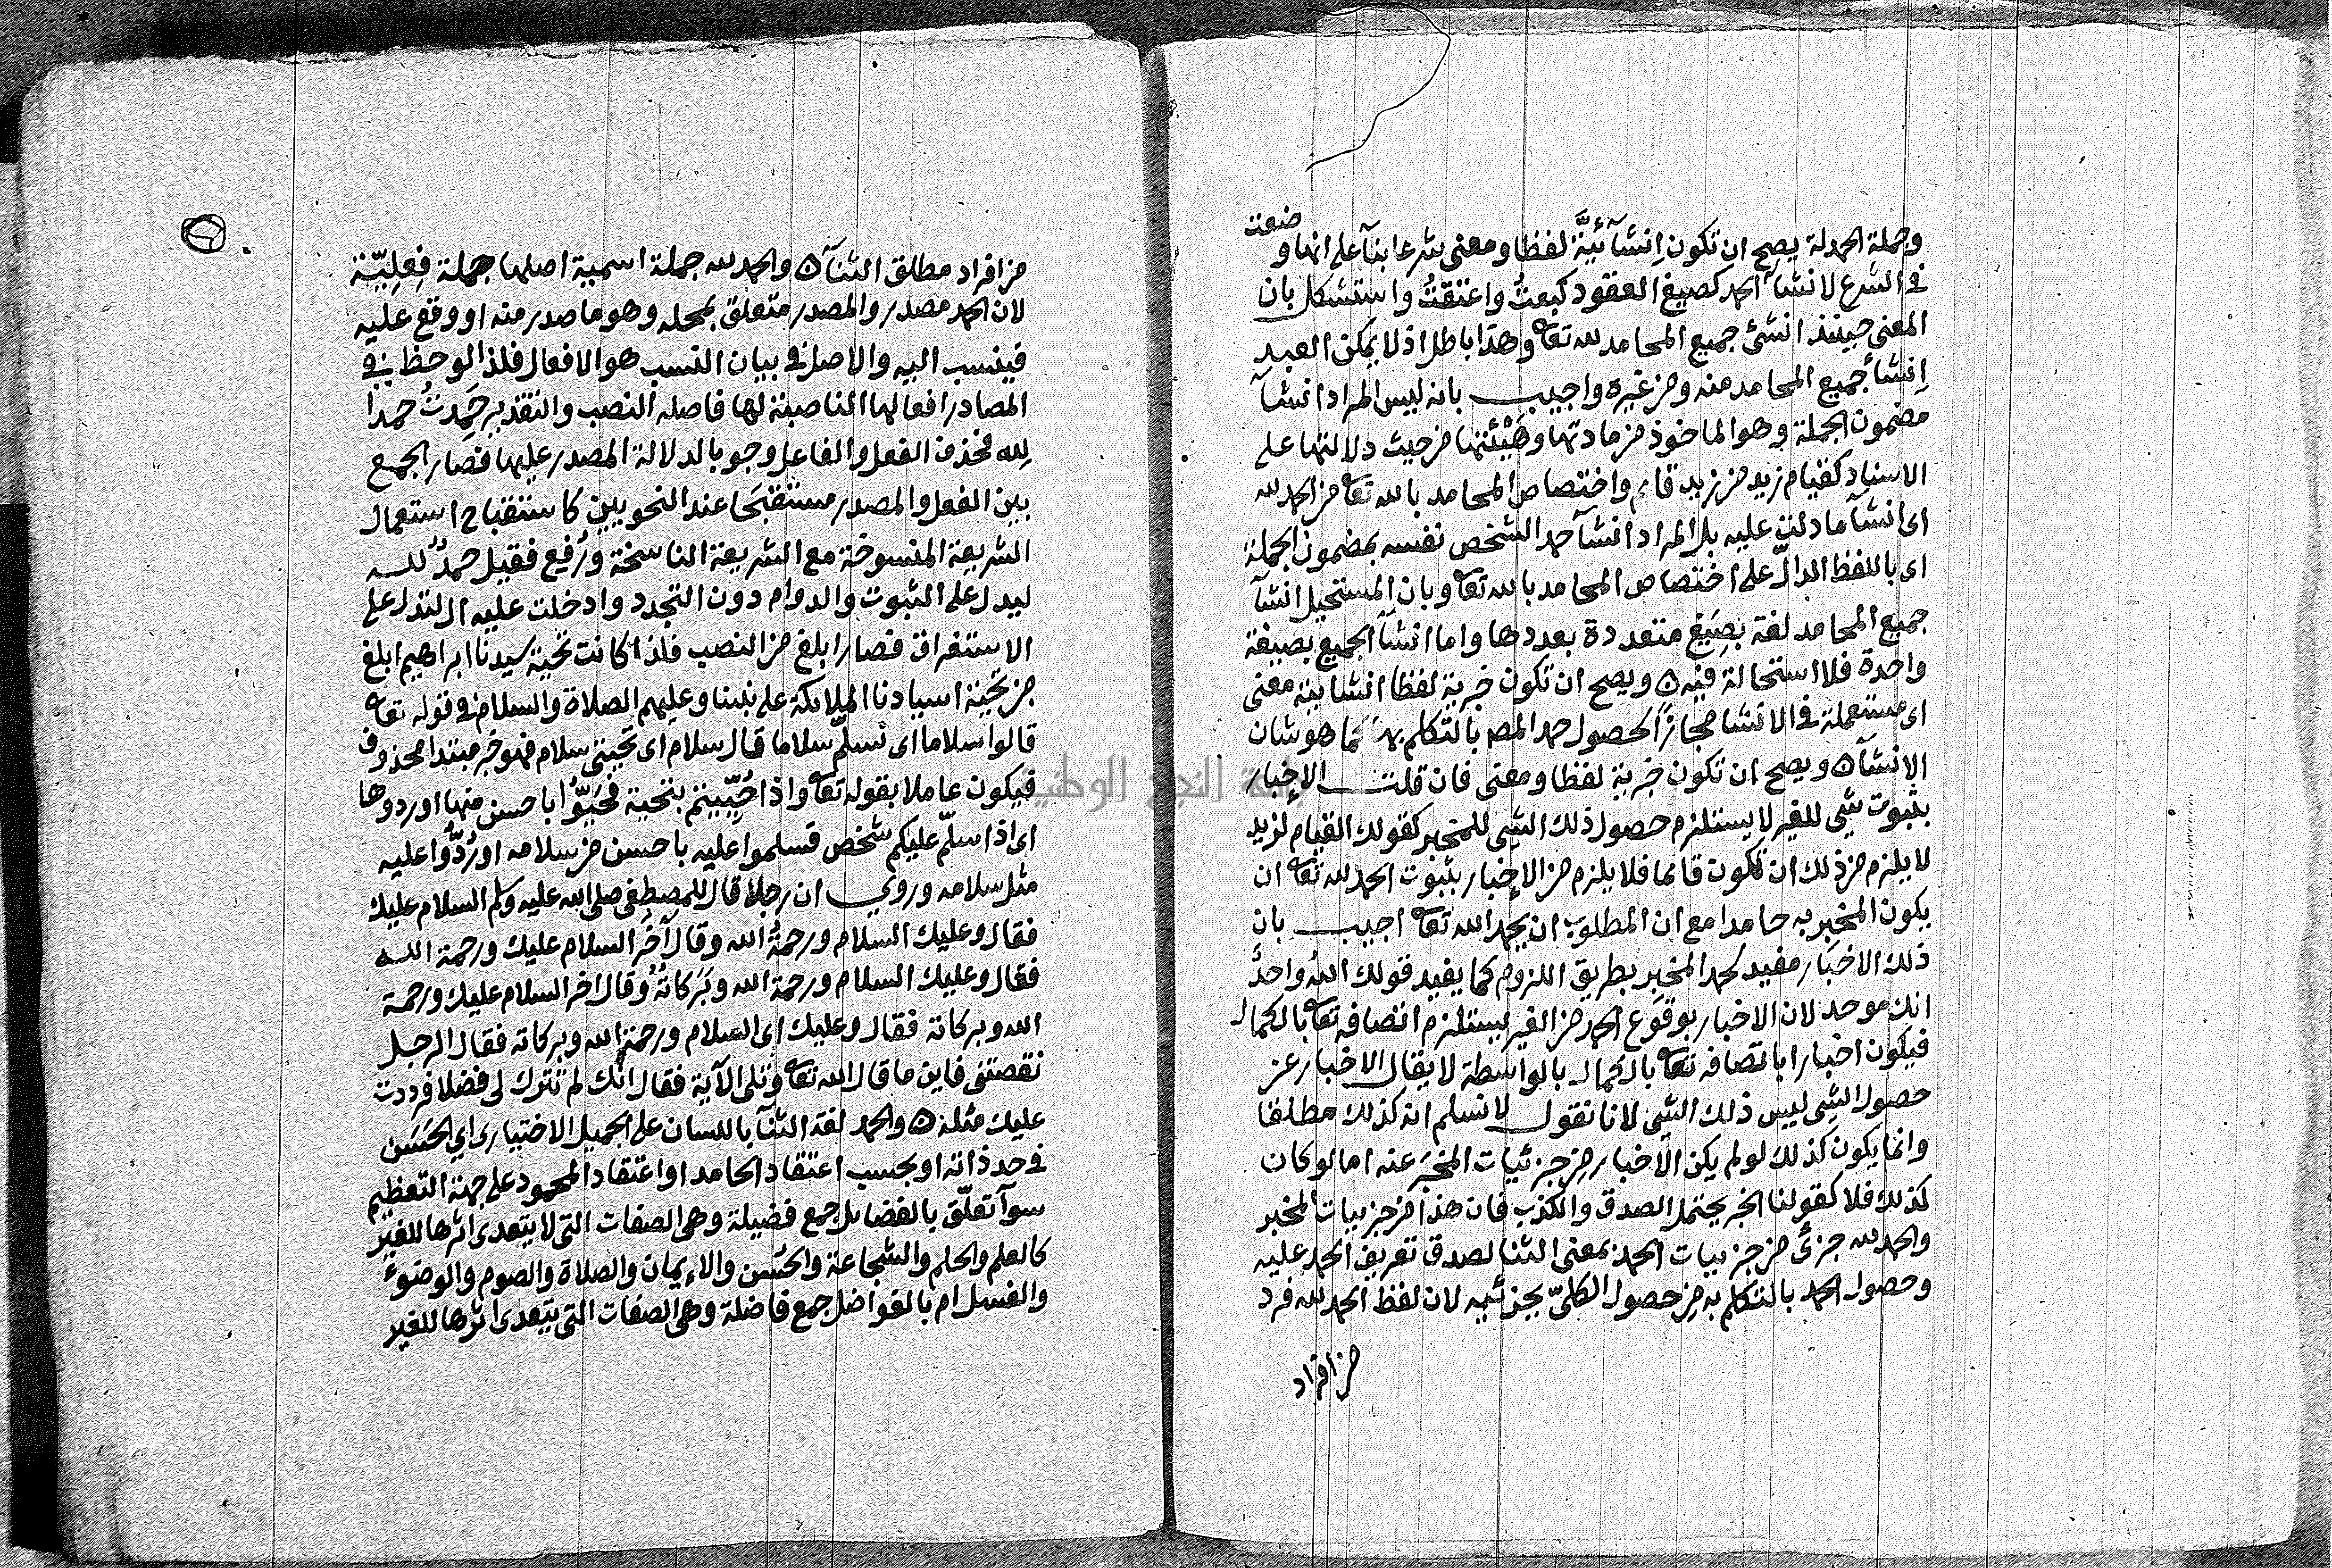 وجملة الحمدلة يصح ان تكون اِنشآئيَّة لفظا ومعنى شرعا بنآ على انها وضعت
في الشرع لانشآ الحمد كصيغ العقود كبعتُ واعتقتُ واستشكل بان
المعنى حينئذ انشئ جميع المحامد لله تعالى وهذا باطل اذ لا يمكن العبد
اِنشأ جميع المحامد منه ومن غيره واجيب بانه ليس المراد انشآ
مضمون الجملة وهو الماخوذ من مادتها وهَيْئَتها من حيث دلالتها على
الاسناد كقيام زيد من زيد قام واختصاص المحامد بالله تعالى من الحمد لله
اى انشآ ما دلت عليه بل المراد انشآ حمد الشخص نفسه بمضمون الجملة
اى باللفظ الدالّ على اختصاص المحامد بالله تعالى وبان المستحيل انشآ
جميع المحامد لغة بصِيَغ متعددة بعددها واما انشآ الجميع بصيغة
واحدة فلا استحالة فيه ٥ ويصح ان تكون خبرية لفظا انشايية معنى
اى مستعملة في الانشا مجازًا لحصول حمد المصـ بالتكلم بها كما هو شان
الانشآ ٥ ويصح ان تكون خبرية لفظا ومعنى فان قلت الاِخبار
بثبوت شيى للغير لا يستلزم حصول ذلك الشيى للمخبر كقولك القيام لزيد
لا يلزم من ذلك ان تكون قائما فلا يلزم من الاِخبار بثبوت الحمد لله تعالى ان
يكون المخبر به حامدا مع ان المطلوب ان يحمد الله تعالى اجيب بان
ذلك الاخبَار مفيد لحمد المخبر بطريق اللزوم كما يفيد قولك اللهُ واحدٌ
انك موحد لان الاخبار بوقوع الحمد من الغير يستلزم اتصافه تعالى بالكمال
فيكون اخبارا باتصافه تعالى بالكمال بالواسطة لا يقال الاخبار عن
حصول الشيى ليس ذلك الشيى لانا نقول لا نسلم انه كذلك مطلقا
وانما يكون كذلك لو لم يكن الاخبار من جزئيات المخبَر عنه اما لو كان
كذلك فلا كقولنا الخبر يحتمل الصدق والكذب فان هذا من جزييات المخبر
والحمد لله جزئ من جزييات الحمد بمعنى الثنا لصدق تعريف الحمد عليه
وحصول الحمد بالتكلم به من حصول الكلىّ بجزئيه لان لفظ الحمد لله فرد
من افراد
من افراد مطلق الثنآ ٥ والحمد لله جملة اسمية اصلها جملة فِعلِيّة
لان الحمد مصدر والمصدر متعلق بمحله وهو ما صدر منه او وقع عليه
فينسب اليه والاصل في بيان النسب هو الافعال فلذا لوحظ في
المصادر افعالها الناصبة لها فاصله النصب والتقدير حَمِدتُ حمدا
لله فحذف الفعل والفاعل وجوبا لدلالة المصدر عليها فصار الجمع
بين الفعل والمصدر مستقبَحا عند النحويين كاستقباح استعمال
الشريعة المنسوخة مع الشريعة الناسخة ورُفِع فقيل حمدٌ لله
ليدل على الثبوت والدوام دون التجدد وادخلت عليه ال لتدل على
الاستغراق فصار ابلغ من النصب فلذا كانت تحية سيدنا ابراهيم ابلغ
من تحية اسيادنا الملايكة على نبينا وعليهم الصلاة والسلام في قوله تعالى
قالوا سلاما اى نسلّم سلاما قال سلام اى تحيتى سلام فهو خبر مبتدا محذوف
فيكون عاملا بقوله تعالى واذا حُيِّيتم بتحية فحَيّوُا باحسن منها او ردوها
اى اذا سلّم عليكم شخص فسلموا عليه باحسن من سلامه او رُدُّوا عليه
مثل سلامه وروي ان رجلا قال للمصطفى صلى الله عليه وسلم السلام عليك
فقال وعليك السلام ورحمةُ الله وقال آخَر السلام عليك ورحمة الله
فقال وعليك السلام ورحمة الله وبَرَكاتُهُ وقال اخر السلام عليك ورحمة
الله وبركاته فقال وعليك اى السلام ورحمة الله وبركاته فقال الرجل
نقصتنى فاين ما قال الله تعالى وتلى الآية فقال انك لم تترك لى فضلا فرددت
عليك مثله ٥ والحمد لغة الثنآ باللسان على الجميل الاختيارى اي الحَسَن
في حد ذاته او بحسب اعتقاد الحامد او اعتقاد المحمود على جهة التعظيم
سوآ تعلّق بالفضايل جمع فضيلة وهى الصفات التى لا يتعدى اثرها للغير
كالعلم والحلم والشجاعة والحُسن والاِيمان والصلاة والصوم والوضوءُ
والغسل ام بالفواضل جمع فاضلة وهى الصفات التى يتعدى اثرها للغير
جامعة النجاح الوطنية